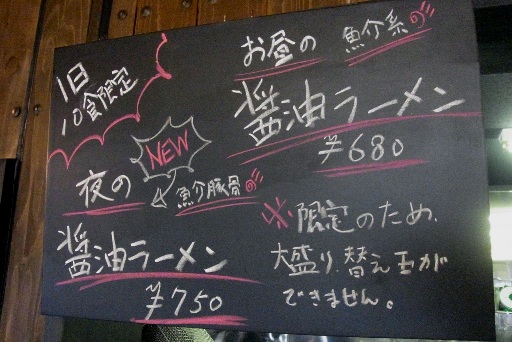 1日
10食限定
お昼の 魚介系の
醤油ラーメン
¥680
NEW
夜の 魚介豚骨の
醤油ラーメン
¥750
※限定のため、
大盛り、替え玉が
できません。